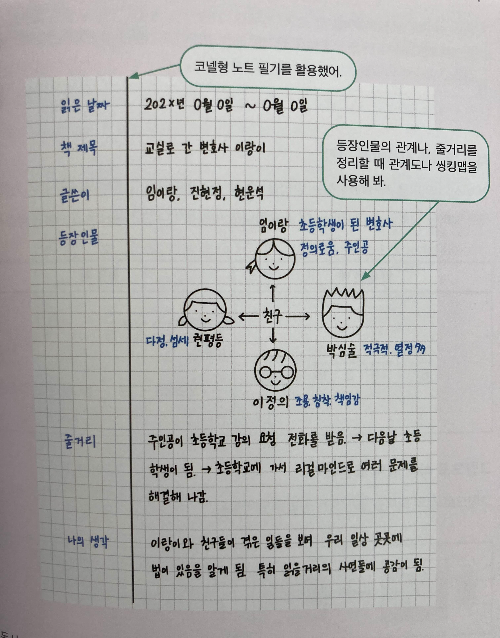 코넬형 노트 필기를 활용했어.
읽은 날짜 202X년 0월 0일 ~ 0월 0일
등장인물의 관계나, 줄거리를
정리할 때 관계도나 씽킹맵을
사용해 봐.
책 제목 교실로 간 변호사 이랑이
글쓴이 임이랑, 진현정, 현운석
등장인물
임이랑 초등학생이 된 변호사
정의로움, 주인공
친구
다정, 섬세 권평등
박심술 적극적, 열정적
이정의 조용, 침착, 책임감
줄거리 주인공이 초등학교 강의 요청 전화를 받음. → 다음날 초등
학생이 됨. → 초등학교에 가서 리걸 마인드로 여러 문제를
해결해 나감.
나의 생각 이랑이와 친구들이 겪은 일들을 보며 우리 일상 곳곳에
법이 있음을 알게 됨. 특히 읽을거리의 사연들에 공감이 됨.